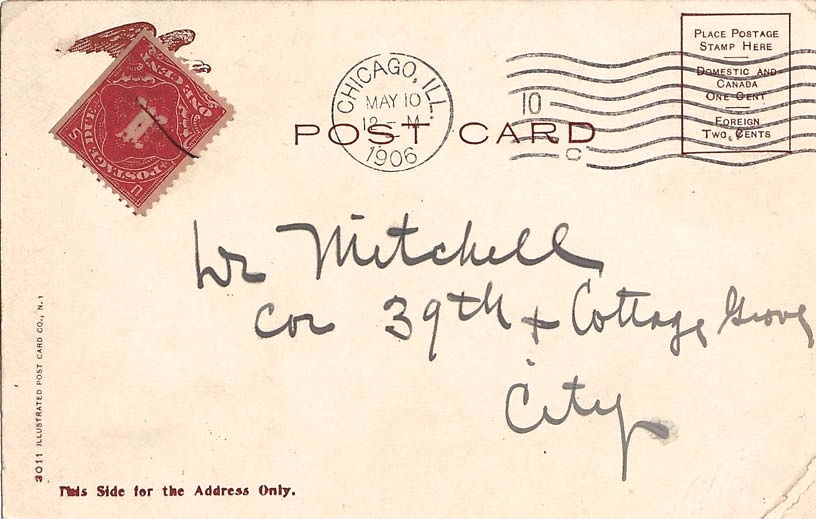 PLACE POSTAGE
STAMP HERE
DOMESTIC AND
CANADA
ONE CENT
FOREIGN
TWO CENTS
CHICAGO, ILL.
MAY 10
12 - M
1906
10
C
POST CARD
POSTAGE DUE
ONE CENT
1
U
S
Dr Mitchell
Cor 39th + Cottage Grove
City
3011 ILLUSTRATED POST CARD CO., N.Y.
This Side for the Address Only.